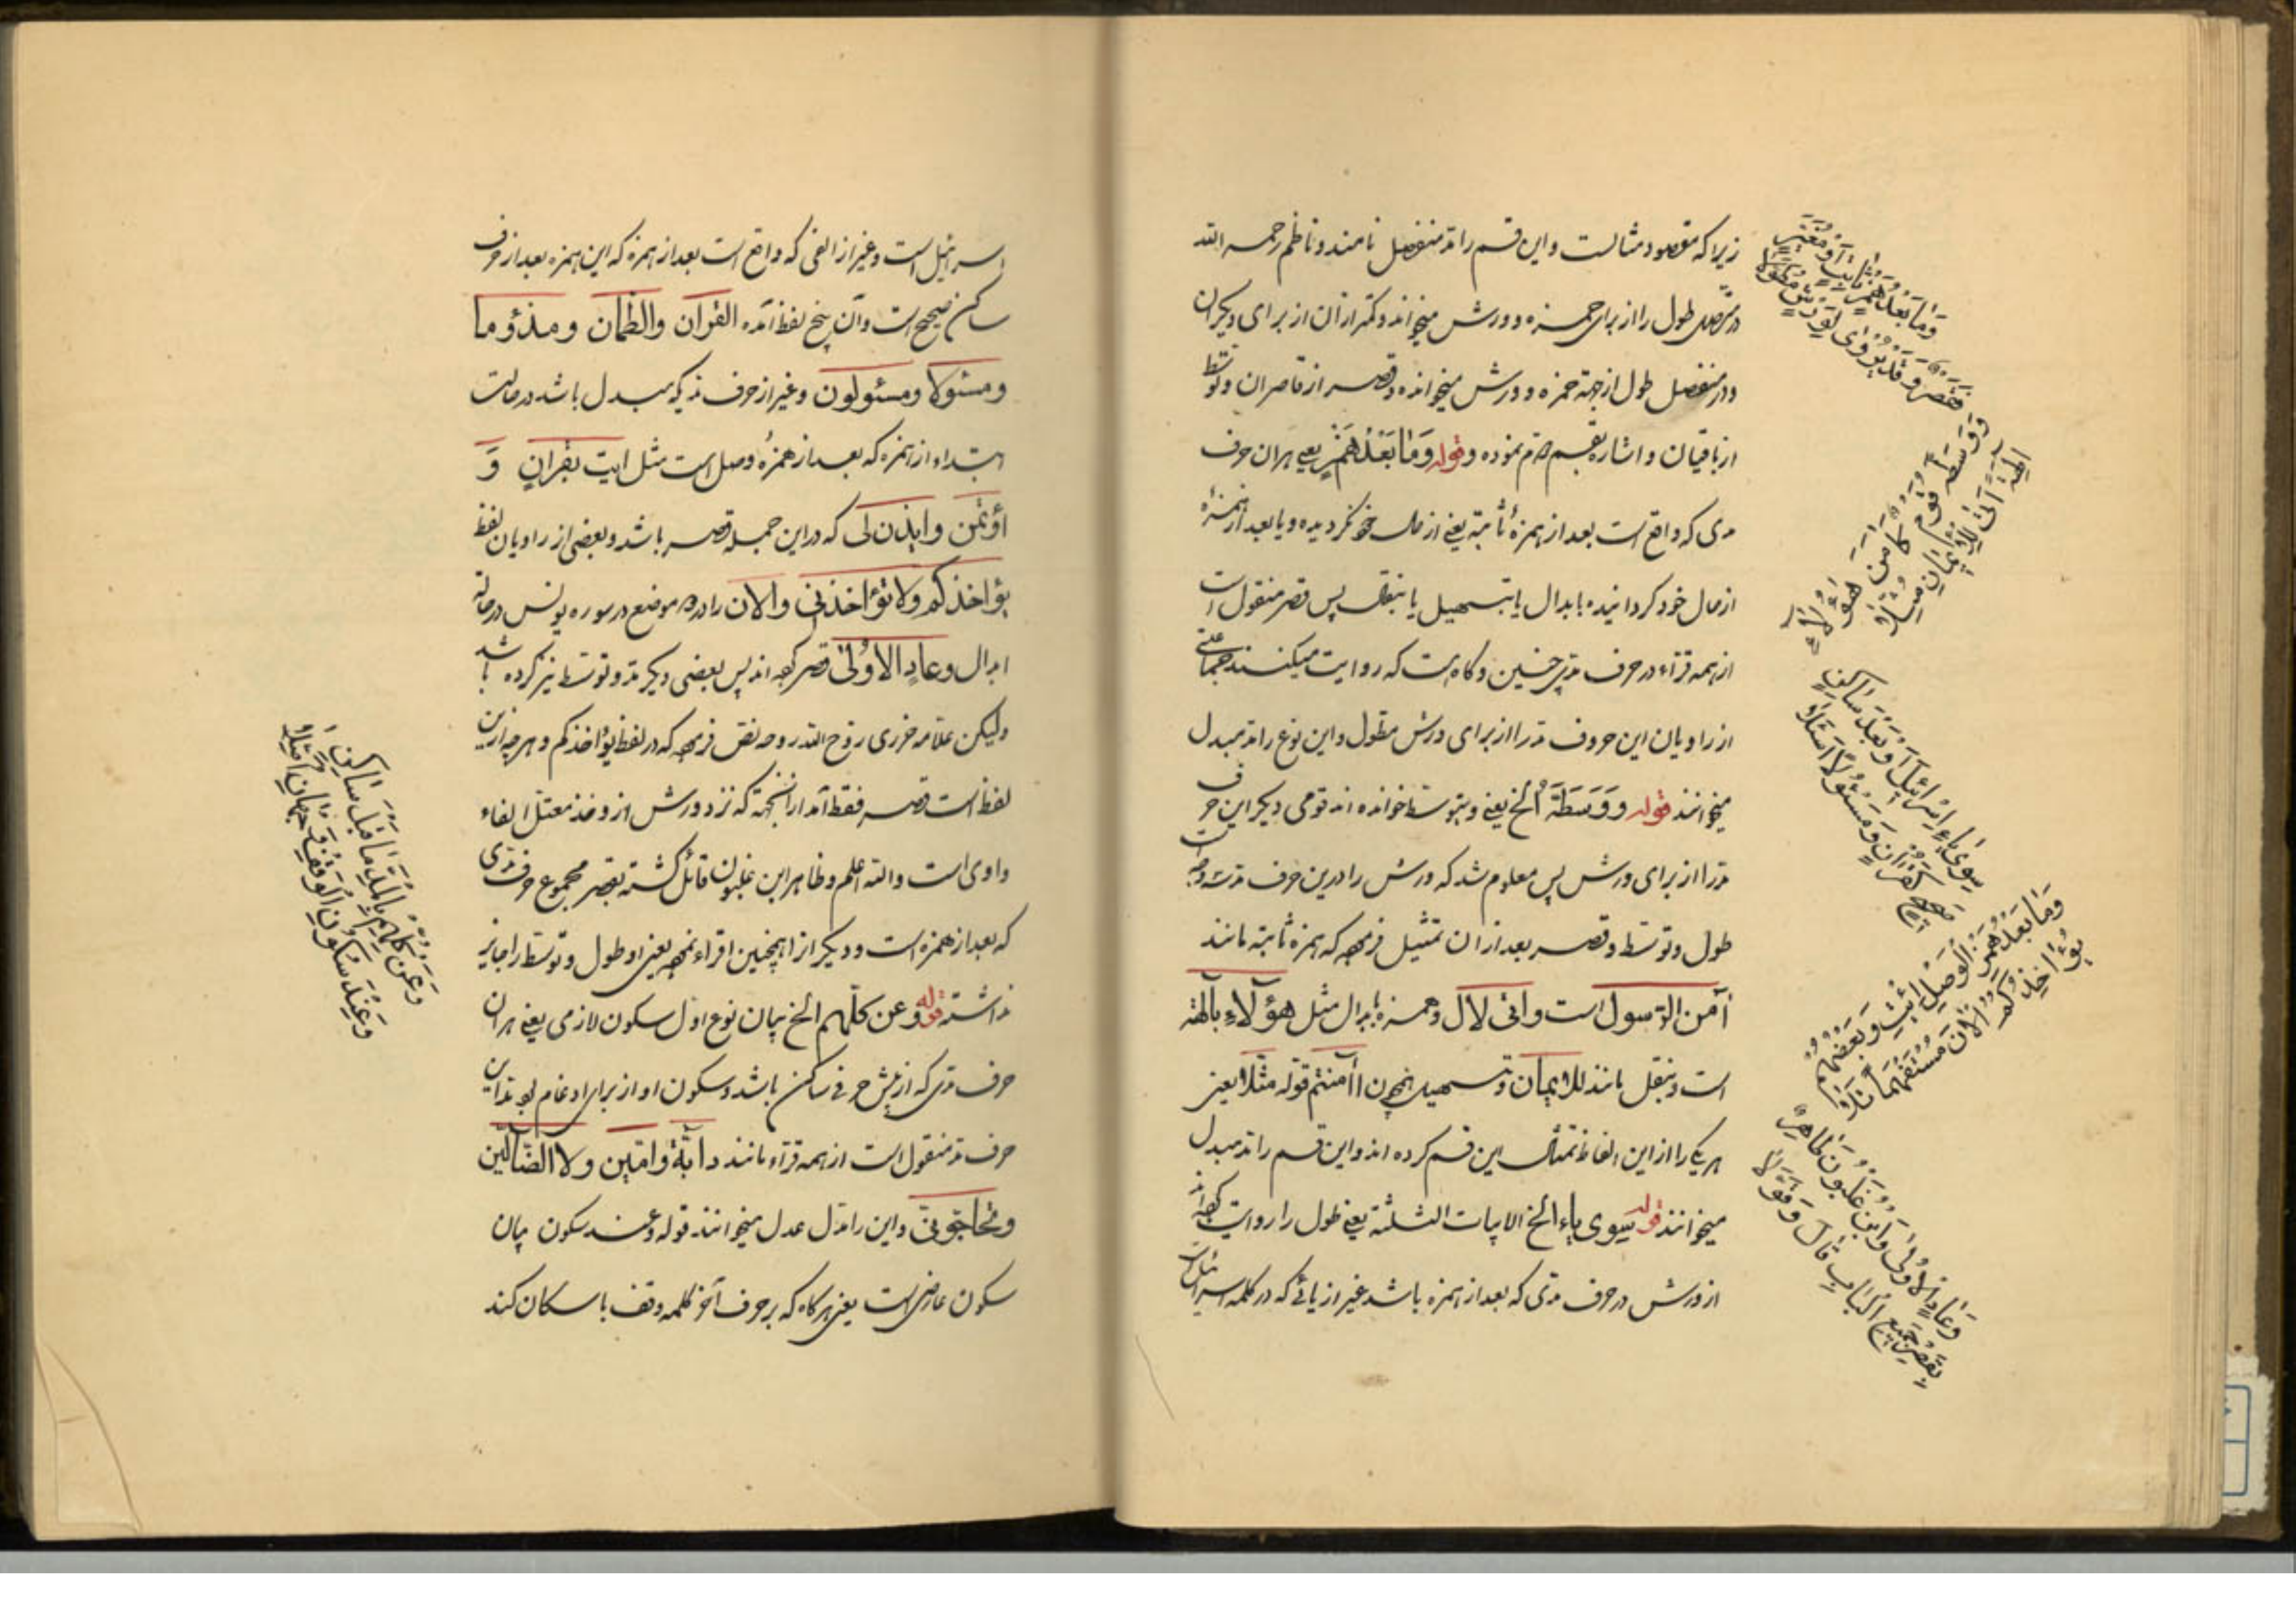 زیرا که مقصود مثالست و این قسم را مد منفصل نامند و ناظم رحمه الله
در متصل طول را از برای حمزه و ورش میخوانند و کمتر از آن از برای دیگران
و در منفصل طول از جهة حمزه و ورش میخوانند و قصر از قاصران و توسط
از باقیان و اشاره بقسم دوم نموده و قوله وَمَا بَعْدَ هَمْزٍ یعنی هر آن حرف
مدی که واقع است بعد از همزهٔ ثابته یعنی از حال خود نگردیده و یا بعد از همزهٔ
از حال خود گردانیده بابدال یا بتسهیل یا بنقل پس قصر منقول است
از همه قراء در حرف مدی چنین و گاه است که روایت میکنند جماعتی
از راویان این حروف مد را از برای ورش مطول و این نوع را مد مبدل
میخوانند قوله وَوَسَّطَهُ الخ یعنی و بتوسط خوانده اند قومی دیگر این حرف
مد را از برای ورش پس معلوم شد که ورش را درین حرف مد سه وجه است
طول و توسط و قصر بعد از آن تمثیل فرموده که همزه ثابته مانند
آمن الرّسول است و اتی لآل و همزه بابدال مثل هؤلاءِ آلهة
است و بنقل مانند للایمان و تسهیل همچون أآمنتم قوله مثّلا یعنی
هر یک را از این الفاظ تمثال این قسم کرده اند و این قسم را مد مبدل
میخوانند قوله سِوی یاءِ الخ الابیات الثلثة یعنی طول را روایت کرده اند
از ورش در حرف مدی که بعد از همزه باشد غیر از یائی که در کلمه اسرائیل است
وَمَا بَعْدَ هَمْزٍ ثَابِتٍ أَوْ مُغَيَّرٍ
فَقَصْرٌ وَقَدْ يُرْوَى لِوَرْشٍ مُطَوَّلَا
وَوَسَّطَهُ قَوْمٌ كَآمَنَ هَؤُلَاءِ
آلِهَةً آتَى لِلْإِيمَانِ مُثِّلَا
سِوَى يَاءِ إِسْرَائِيلَ أَوْ بَعْدَ سَاكِنٍ
صَحِيحٍ كَقُرْآنٍ وَمَسْئُولًا اسْأَلَا
وَمَا بَعْدَ هَمْزِ الْوَصْلِ ائْتِ وَبَعْضُهُمْ
يُؤَاخِذُكُمْ آلْآنَ مُسْتَفْهِمًا تَلَا
وَعَادٍ الْأُولَى وَابْنُ غَلْبُونَ طَاهِرٌ
بِقَصْرِ جَمِيعِ الْبَابِ قَالَ وَقَوَّلَا
اسرائیل است و غیر از الفی که واقع است بعد از همزه که این همزه بعد از حرف
ساکن صحیح است و آن پنج لفظ آمده القرآن والظمآن و مذؤما
ومسئولا ومسئولون و غیر از حرف مدی که مبدل باشد در حالت
ابتداء از همزه که بعد از همزهٔ وصل است مثل ایت بقرآن وَ
اؤتمن وایذن لی که در این جمله قصر باشد و بعضی از راویان لفظ
یؤاخذکم ولا تؤاخذنی والآن را در دو موضع در سوره یونس در حالة
ابدال وعادٍ الاُولی قصر کرده اند پس بعضی دیگر مد و توسط نیز کرده باشد
ولیکن علامه جزری روّح الله روحه نص فرموده که در لفظ یؤاخذکم و هر چه از این
لفظ است قصر فقط آمده از آنجهة که نزد ورش از وخذ معتل الفاء
واوی است و الله اعلم و ظاهر ابن غلبون قائل گشته بقصر مجموع حرف مدی
که بعد از همزه است و دیگر از اهمچنین اقراء نموده یعنی او طول و توسط را جایز
نداشته قوله وعن کلّهم الخ بیان نوع اول سکون لازمی یعنی هر آن
حرف مدی که از پیش حرفی ساکن باشد و سکون او از برای ادغام بود مد این
حرف مد منقول است از همه قراء مانند دابّة وآمّین ولا الضّآلّین
وتحاجّونّی و این را مدّ عدل میخوانند قوله وعند سکون بیان
سکون عارضی است یعنی هر گاه که بر حرف آخر کلمه وقف باسکان کند
وَعَنْ كُلِّهِمْ بِالْمَدِّ مَا قَبْلَ سَاكِنٍ
وَعِنْدَ سُكُونِ الْوَقْفِ وَجْهَانِ أُصِّلَا